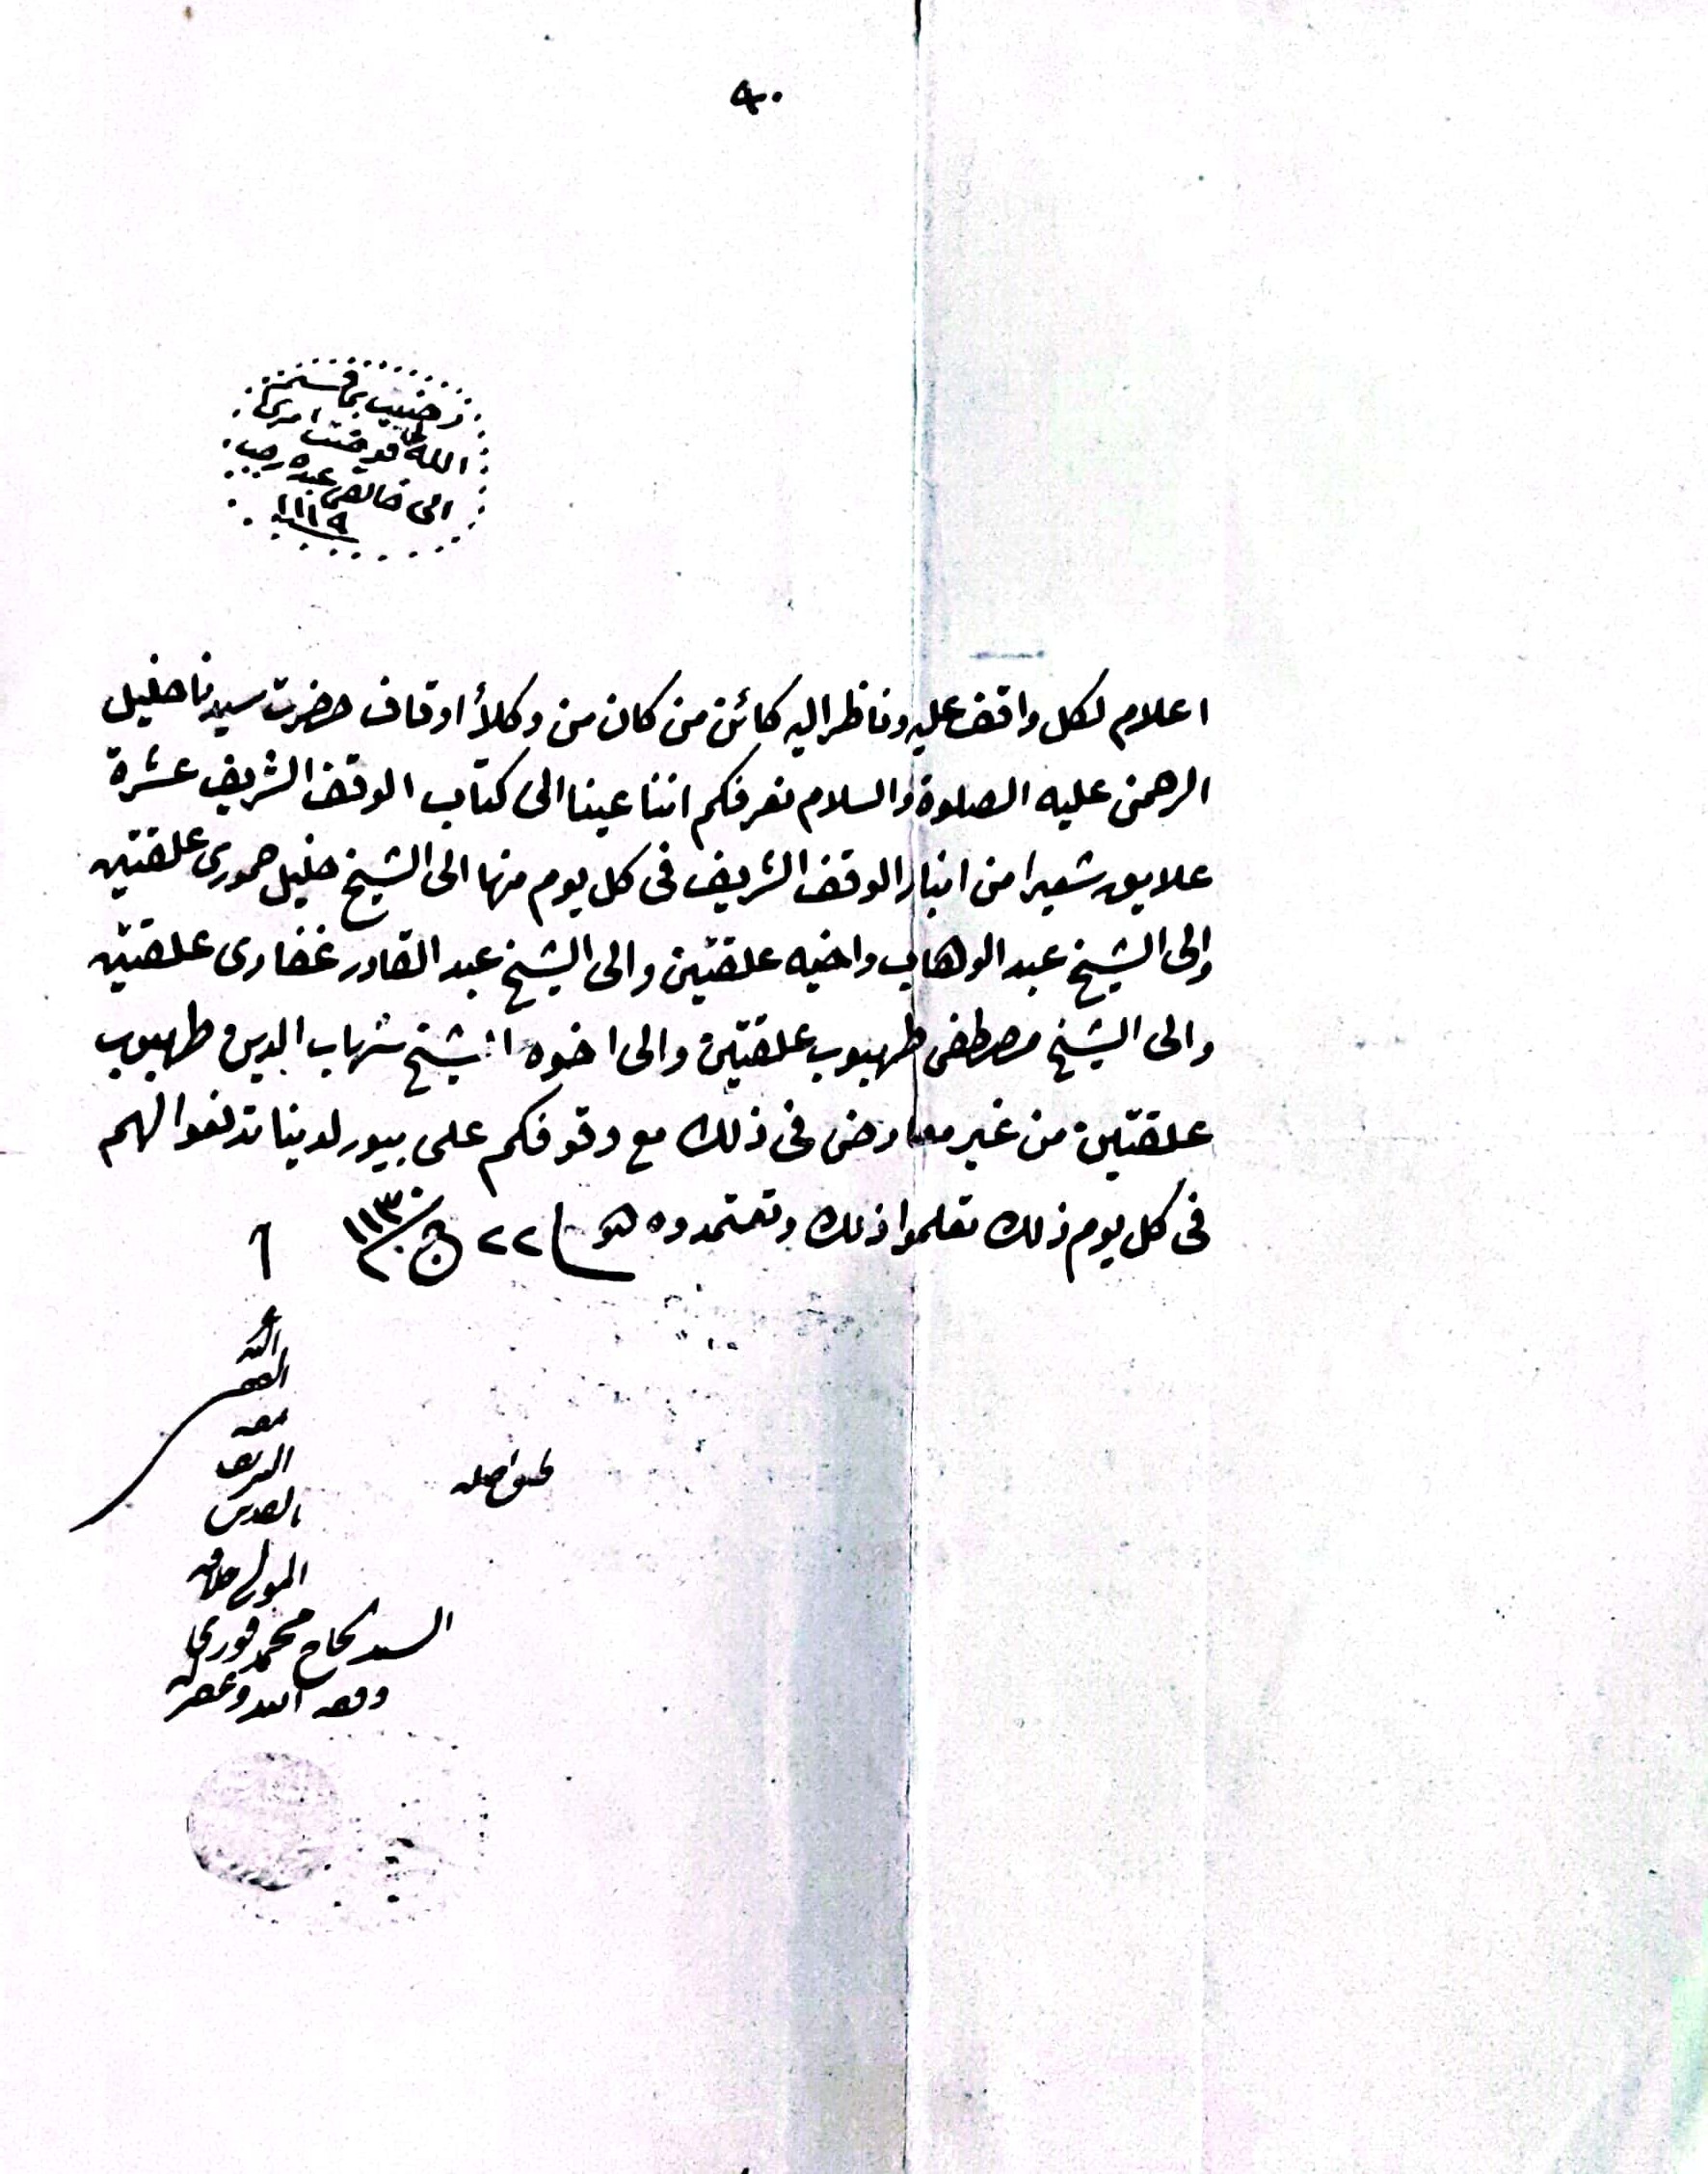 ٤٠
رضيت بما قسم
الله لي وفوضت امري
الى خالقي عبده رجب
١١١٩
اعلام لكل واقف عليه وناظر اليه كائن من كان من وكلأ اوقاف حضرت سيدنا خليل
الرحمن عليه الصلوة والسلام نعرفكم اننا عينا الى كتاب الوقف الشريف عشرة
علايق شعيرا من انبار الوقف الشريف فى كل يوم منها الى الشيخ خليل حمورى علقتين
والى الشيخ عبد الوهاب واخيه علقتين والى الشيخ عبد القادر غفارى علقتين
والى الشيخ مصطفى طهبوب علقتين والى اخوه الشيخ شهاب الدين طهبوب
علقتين من غير معارض فى ذلك مع وقوفكم على بيورلدينا تدفعوا لهم
فى كل يوم ذلك تعلموا ذلك وتعتمدوه ٢٢ ١١٣٠
طبق اصله
الفقير
الشريف
القدس
المولى خلافه
السيد الحاج محمد فوزي